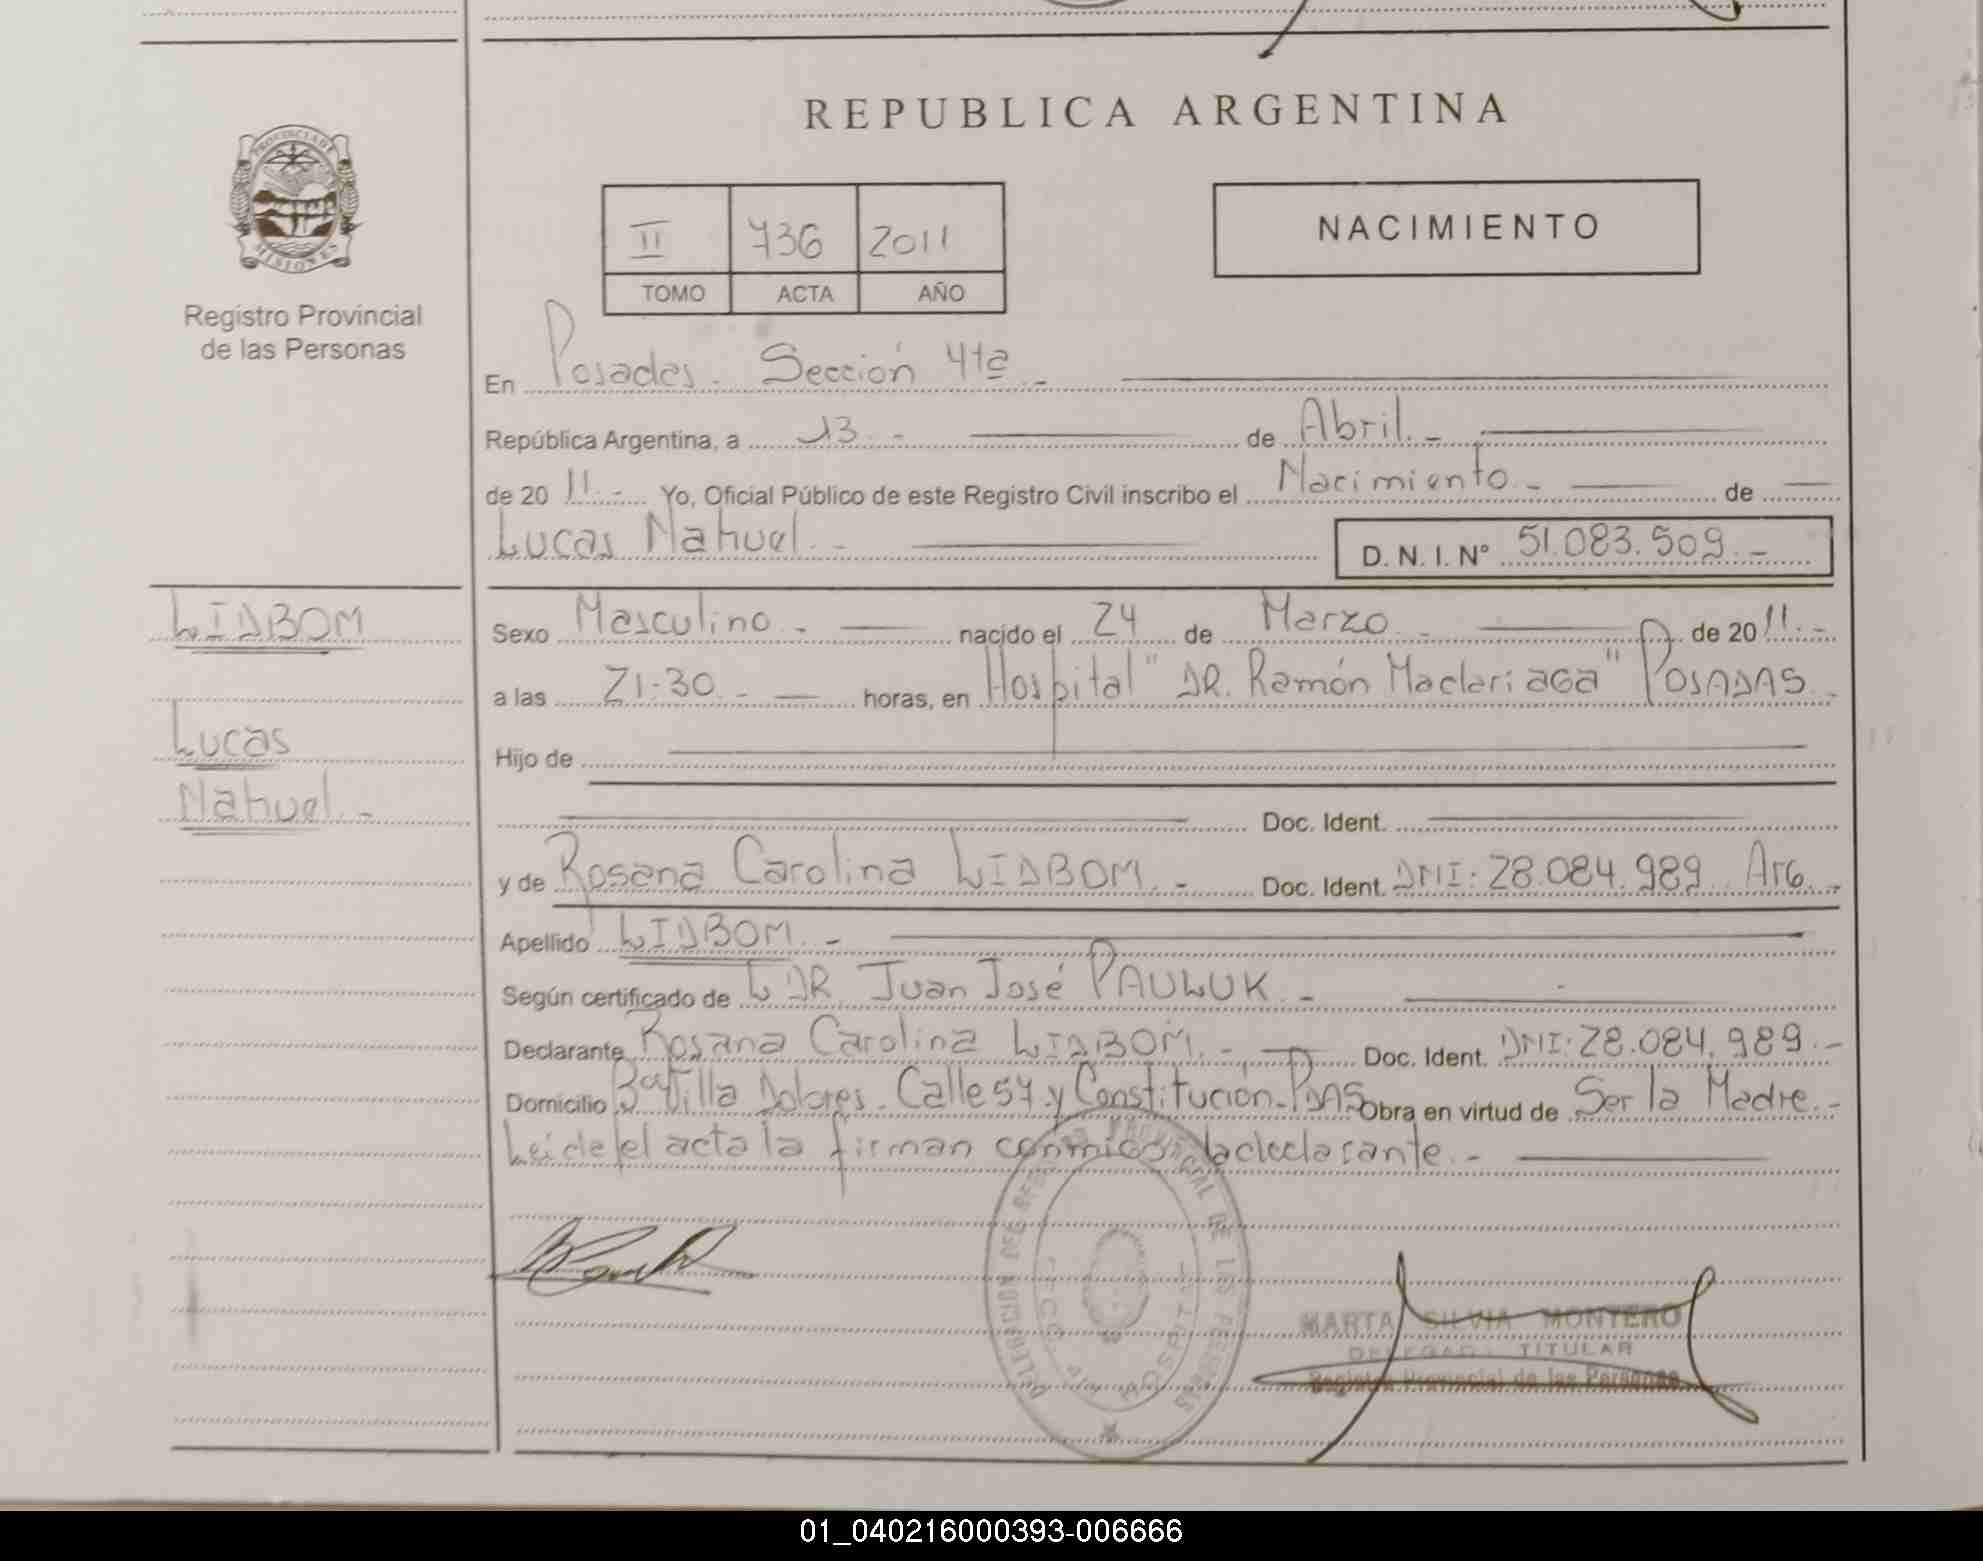 REPUBLICA ARGENTINA
PROVINCIA DE
MISIONES
Registro Provincial
de las Personas
II 736 2011
TOMO ACTA AÑO
NACIMIENTO
En Posadas. Sección 4ta -
República Argentina, a 13. - de Abril. -
de 20 11. - Yo, Oficial Público de este Registro Civil inscribo el Nacimiento - de
Lucas Nahuel. -
D. N. I. Nº 51.083.509. -
LIDBOM
Lucas
Nahuel. -
Sexo Masculino - nacido el 24 de Marzo de 2011. -
a las 21.30 - horas, en Hospital "DR. Ramón Madariaga" POSADAS -
Hijo de
Doc. Ident.
y de Rosana Carolina LIDBOM. - Doc. Ident. DNI: 28.084.989 Arg. -
Apellido LIDBOM. -
Según certificado de DR Juan José PAULUK. -
Declarante Rosana Carolina LIDBOM. - Doc. Ident. DNI: 28.084.989. -
Domicilio Bº Villa Dolores. Calle 57 y Constitución. PDAS Obra en virtud de Ser la Madre. -
Leída el acta la firman conmigo la declarante. -
DELEGACION DEL REGISTRO PROVINCIAL DE LAS PERSONAS
MARTA SILVIA MONTERO
DELEGADA TITULAR
Registro Provincial de las Personas
01_040216000393-006666